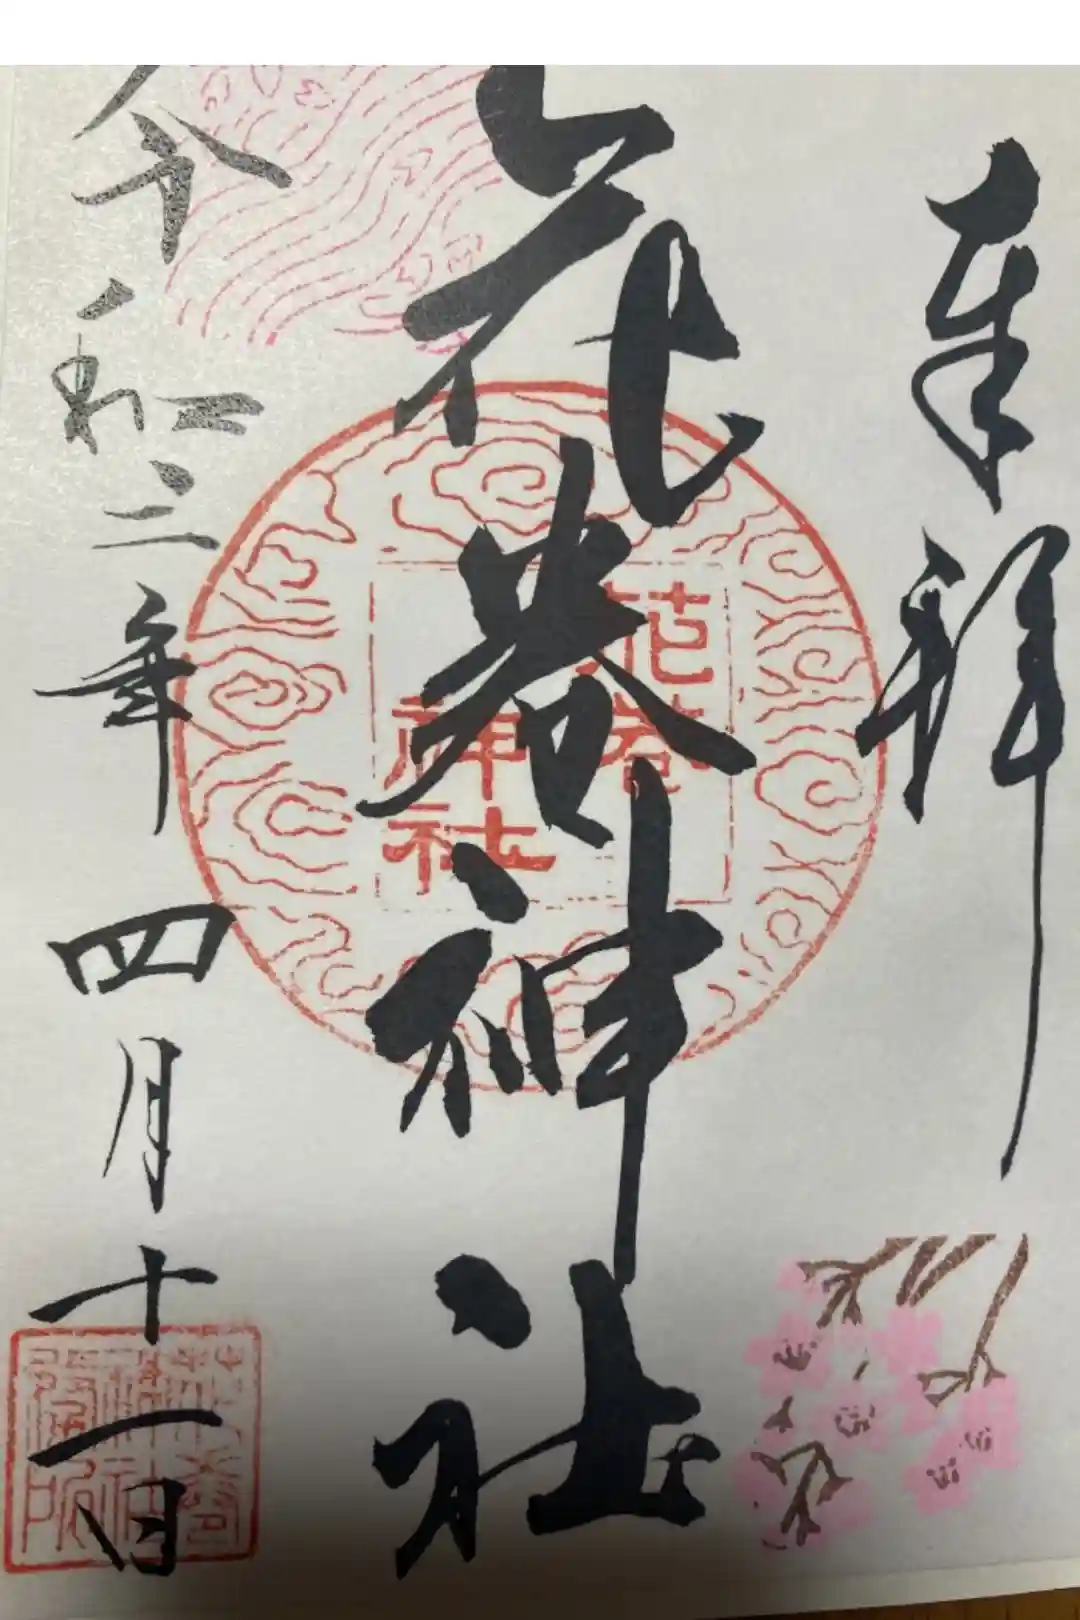 奉拝
花巻神社
花巻
神社
令和三年四月十一日